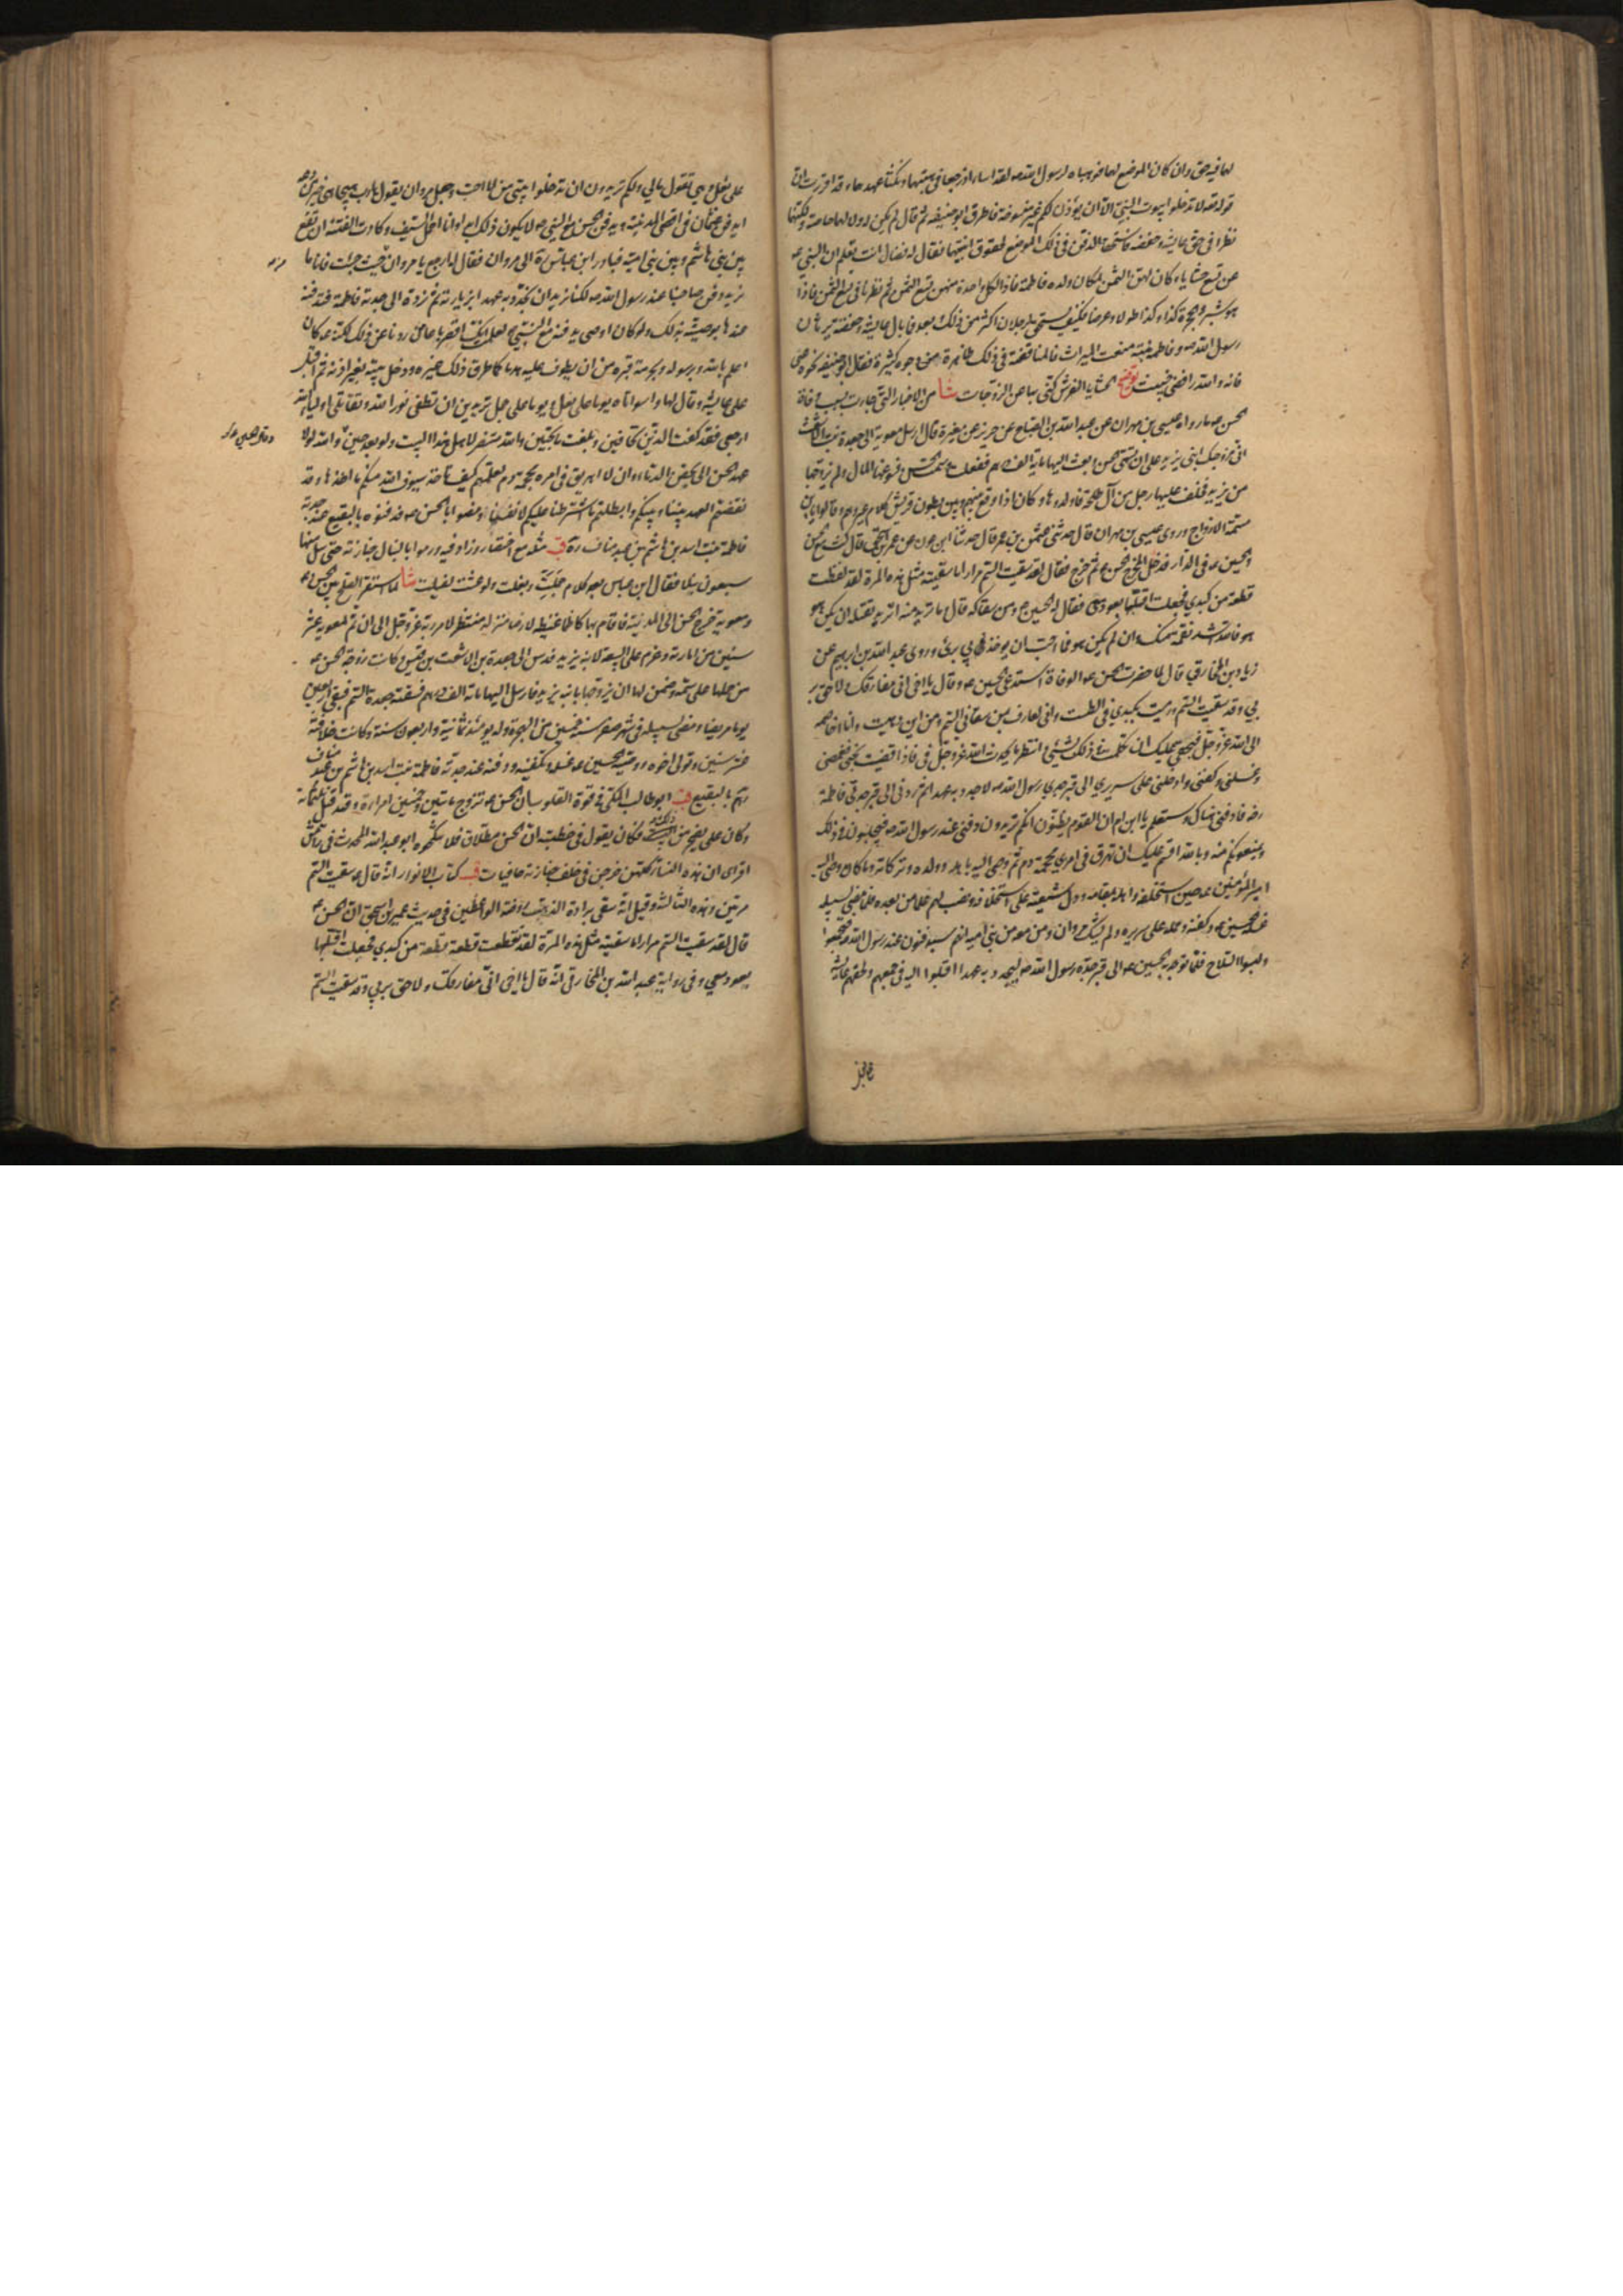 لها فيه حق وان كان الموضع لهما فوهباه لرسول الله ص لقد اساءا اذ رجعا في هبتهما ونكثا عهدهما وقد اقررت ان
قوله تعالى لا تدخلوا بيوت النبي الا ان يؤذن لكم غير منسوخة فاطرق ابو حنيفة ثم قال لم يكن له ولا لهما خاصة ولكنهما
نظرا في حق عايشة وحفصة فاستحقا الدفن في ذلك الموضع لحقوق ابنتيهما فقال له فضال انت تعلم ان النبي ص
عن تسع حشايا وكان لهن الثمن لمكان ولده فاطمة فاذا لكل واحدة منهن تسع الثمن ثم نظرنا في تسع الثمن فاذا
هو شبر والحجرة كذا وكذا طولا وعرضا فكيف يستحق الرجلان اكثر من ذلك وبعد فما بال عايشة وحفصة ترثان
رسول الله ص وفاطمة بنته منعت الميراث فالمناقضة في ذلك ظاهرة من وجوه كثيرة فقال ابو حنيفة نحوه عني
فانه والله رافضي خبيث توضيح الحشايا الفرش كنى بها عن الزوجات شا من الاخبار التي جاءت بسبب وفاة
الحسن ع ما رواه عيسى بن مهران عن عبيد الله بن الصباح عن جرير عن مغيرة قال ارسل معوية الى جعدة بنت الاشعث
اني مزوجك ابني يزيد على ان تسمي الحسن وبعث اليها ماية الف درهم ففعلت وسمت الحسن فسوغها المال ولم يزوجها
من يزيد فخلف عليها رجل من آل طلحة فاولدها وكان اذا وقع بينهم وبين بطون قريش كلام عيروهم وقالوا يا بني
مسمة الازواج وروى عيسى بن مهران قال حدثني عثمن بن عمر قال حدثنا ابن عون عن عمر بن اسحق قال كنت مع الحسن
والحسين ع في الدار فدخل الحسن المخرج ثم خرج فقال لقد سقيت السم مرارا ما سقيته مثل هذه المرة لقد لفظت
قطعة من كبدي فجعلت اقلبها بعود معي فقال له الحسين ع ومن سقاكه قال ما تريد منه اتريد تقتله ان يكن هو
هو فالله اشد نقمة منك وان لم يكن هو فما احب ان يؤخذ بي برئ وروى عبد الله بن ابرهيم عن
زياد بن المخارقي قال لما حضرت الحسن ع الوفاة استدعى الحسين ع وقال يا اخي اني مفارقك ولاحق بر
بي وقد سقيت السم ورميت بكبدي في الطست واني لعارف بمن سقاني السم ومن اين دهيت وانا اخاصمه
الى الله عز وجل فبحقي عليك ان تكلمت في ذلك بشيء وانتظر ما يحدث الله عز وجل في فاذا قضيت نحبي فغمضني
وغسلني وكفني واحملني على سريري الى قبر جدي رسول الله ص لاجدد به عهدا ثم ردني الى قبر جدتي فاطمة
رضه فادفني هناك وستعلم يا ابن ام ان القوم يظنون انكم تريدون دفني عند رسول الله ص فيجلبون في ذلك
ويمنعونكم منه وبالله اقسم عليك ان تهرق في امري محجمة دم ثم وصى اليه باهله وولده وتركاته وما كان وصى اليه
امير المؤمنين ع حين استخلفه واهله بمقامه ودل شيعته على استخلافه ونصبه لهم علما من بعده فلما مضى لسبيله
غسله الحسين ع وكفنه وحمله على سريره ولم يشك مروان ومن معه من بني امية انهم سيدفنونه عند رسول الله ص فتجمعوا
ولبسوا السلاح فلما توجه به الحسين ع الى قبر جده رسول الله ص ليجدد به عهدا اقبلوا اليه في جمعهم ولحقهم عايشة
على بغل وهي تقول ما لي ولكم تريدون ان تدخلوا بيتي من لا احب وجعل مروان يقول يا رب هيجا هي خير من دعه
ايدفن عثمان في اقصى المدينة ويدفن الحسن مع النبي ص لا يكون ذلك ابدا وانا احمل السيف وكادت الفتنة ان تقع
بين بني هاشم وبين بني امية فبادر ابن عباس ره الى مروان فقال له ارجع يا مروان من حيث جئت فانا ما
نريد دفن صاحبنا عند رسول الله ص لكنا نريد ان نجدد به عهدا بزيارته ثم نرده الى جدته فاطمة فندفنه
عندها بوصيته بذلك ولو كان اوصى بدفنه مع النبي ص لعلمت انك اقصر باعا من ردنا عن ذلك لكنه ع كان
اعلم بالله وبرسوله وبحرمة قبره من ان يطرق عليه هدما كما طرق ذلك غيره ودخل بيته بغير اذنه ثم اقبل
على عايشة وقال لها واسوأتاه يوما على بغل ويوما على جمل تريدين ان تطفئ نور الله وتقاتلي اولياء الله
ارجعي فقد كفيت الذي تخافين وبلغت ما تحبين والله منتصر لاهل هذا البيت ولو بعد حين والله لولا
عهد الحسن الي بحقن الدماء وان لا اهريق في امره محجمة دم لعلمتم كيف تاخذ سيوف الله منكم مآخذها وقد
نقضتم العهد بيننا وبينكم وابطلتم ما اشترطنا عليكم لانفسنا ومضوا بالحسن ع فدفنوه بالبقيع عند جدته
فاطمة بنت اسد بن هاشم بن عبد مناف ره قب مثله مع اختصار وزاد فيه ورموا بالنبال جنازته حتى سل منها
سبعون نبلا فقال ابن عباس بعد كلام جملت وبغلت ولو عشت لفيلت شا لما استقر الصلح بين الحسن ع
ومعوية خرج الحسن الى المدينة فاقام بها كاظما غيظه لازما منزله منتظرا لامر ربه عز وجل الى ان تم لمعوية عشر
سنين من امارته وعزم على البيعة لابنه يزيد فدس الى جعدة بن الاشعث بن قيس وكانت زوجة الحسن ع
من حملها على سمه وضمن لها ان يزوجها بابنه يزيد فارسل اليها مائة الف درهم فسقته جعدة السم فبقي اربعين
يوما مريضا ومضى لسبيله في شهر صفر سنة خمسين من الهجرة وله يومئذ ثمانية واربعون سنة وكانت خلافته
عشر سنين وتولى اخوه ووصيه الحسين ع غسله وتكفينه ودفنه عند جدته فاطمة بنت اسد بن هاشم بن عبد مناف
رضهم بالبقيع قب ابو طالب المكي في قوة القلوب ان الحسن ع تزوج مأتين وخمسين امراة وقد قيل ثلثمائة
وكان علي يضجر من ذلك فكان يقول في خطبته ان الحسن مطلاق فلا تنكحوه ابو عبد الله المحدث في رامش
افزاى ان هذه النساء كلهن خرجن في خلف جنازته حافيات قب كتاب الانوار انه قال ع سقيت السم
مرتين وهذه الثالثة وقيل انه سقي برادة الذهب روضة الواعظين في حديث عمير بن اسحق ان الحسن ع
قال لقد سقيت السم مرارا ما سقيته مثل هذه المرة لقد تقطعت قطعة قطعة من كبدي فجعلت اقلبها
بعود معي وفي رواية عبد الله بن المخارقي انه قال يا اخي اني مفارقك ولاحق بربي وقد سقيت السم